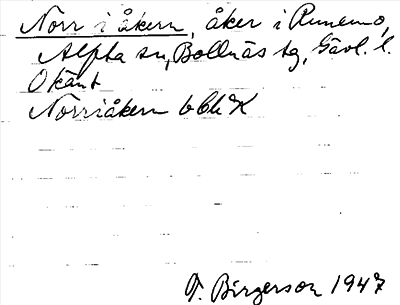 Norr i åkern, åker i Runemo,
Alfta sn, Bollnäs tg, Gävl. l.
Okänt
Norriåkern
T. Birgerson 1947